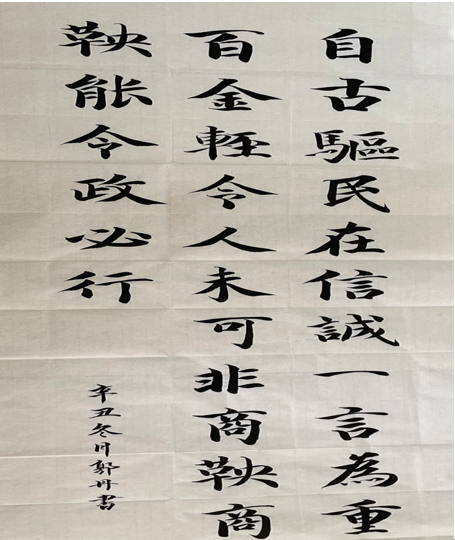 自古驅民在信誠一言為重
百金輕今人未可非商鞅商
鞅能令政必行
辛丑冬月郭丹書